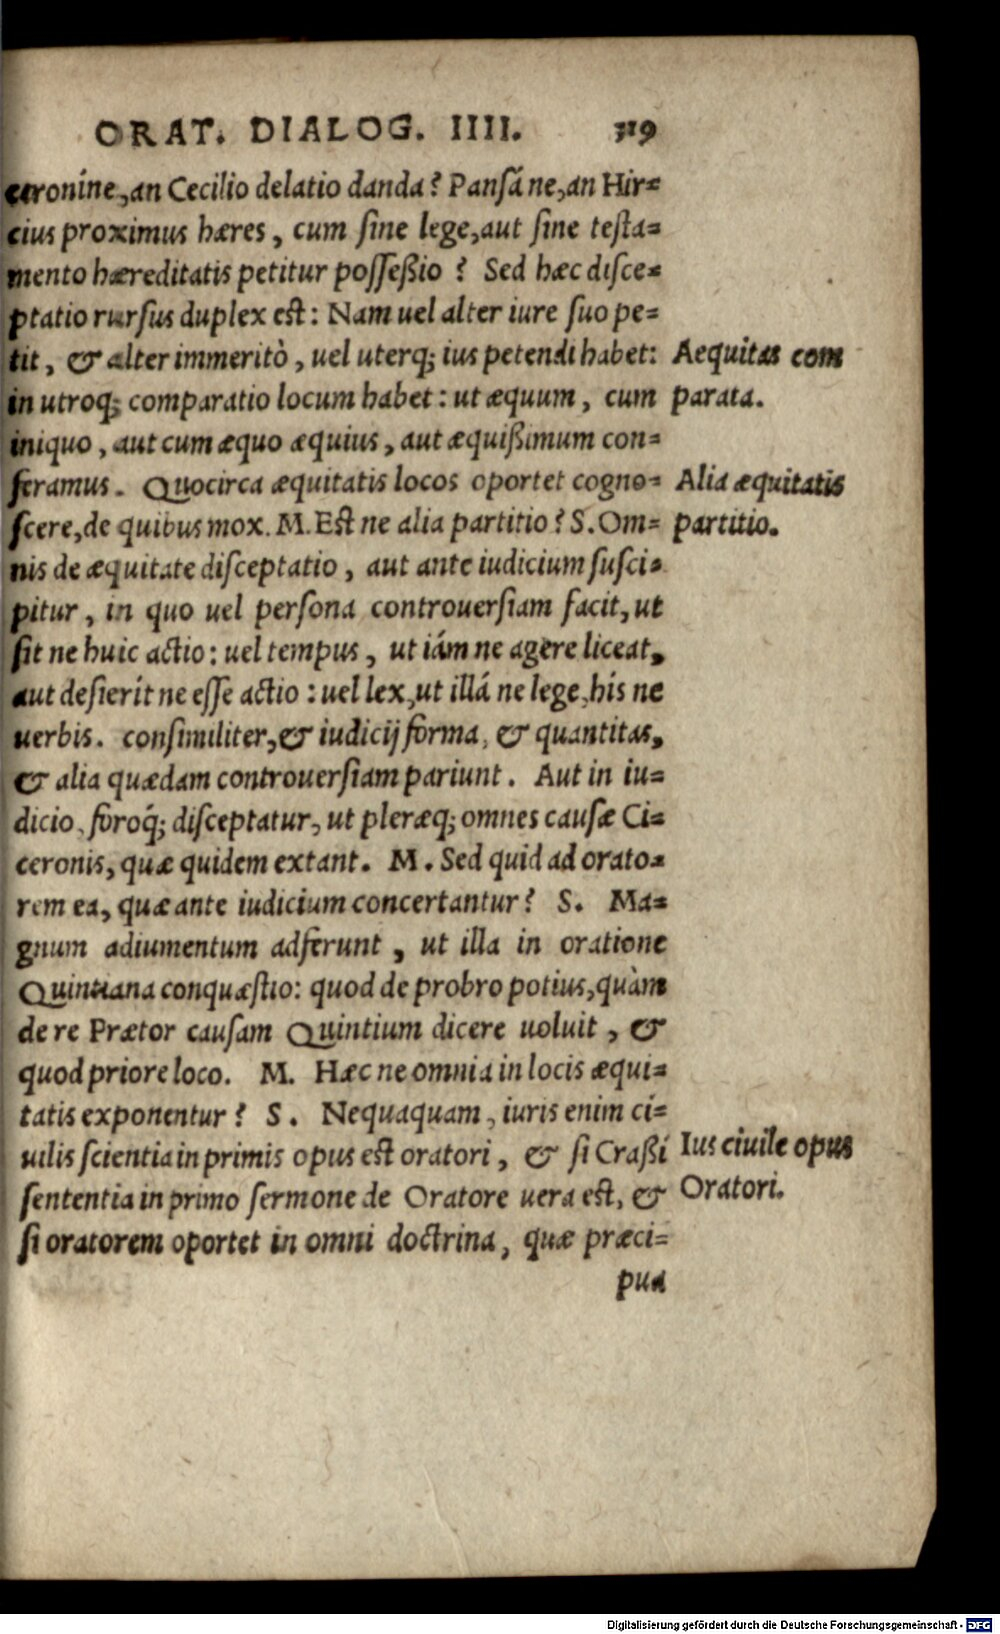 ORAT. DIALOG. IIII. 319
ceroníne, an Cecilio delatio danda? Pansá ne, an Hir=
cius proximus hæres, cum sine lege, aut sine testa=
mento hæreditatis petitur posseßio? Sed hæc disce=
ptatio rursus duplex est: Nam uel alter iure suo pe=
tit, & alter immeritò, uel uterq; ius petendi habet:
Aequitas com
in utroq; comparatio locum habet: ut æquum, cum
parata.
iniquo, aut cum æquo æquius, aut æquißimum con=
feramus. Quocirca æquitatis locos oportet cogno=
Alia æquitatis
scere, de quibus mox. M. Est ne alia partitio? S. Om=
partitio.
nis de æquitate disceptatio, aut ante iudicium susci=
pitur, in quo uel persona controuersiam facit, ut
sit ne huic actio: uel tempus, ut iám ne agere liceat,
aut desierít ne esse actio: uel lex, ut illá ne lege, hís ne
uerbis. consimiliter, & iudicij forma, & quantitas,
& alia quædam controuersiam pariunt. Aut in iu=
dicio, foroq́; disceptatur, ut pleræq; omnes causæ Ci=
ceronis, quæ quidem extant. M. Sed quid ad orato=
rem ea, quæ ante iudicium concertantur? S. Ma=
gnum adiumentum adferunt, ut illa in oratione
Quintiana conquæstio: quod de probro potius, quàm
de re Prætor causam Quintium dicere uoluit, &
quod priore loco. M. Hæc ne omnia in locis æqui=
tatis exponentur? S. Nequaquam, iuris enim ci=
uilis scientia in primis opus est oratori, & si Craßi
Ius ciuile opus
sententia in primo sermone de Oratore uera est, &
Oratori.
si oratorem oportet in omni doctrina, quæ præci=
pua
Digitalisierung gefördert durch die Deutsche Forschungsgemeinschaft - DFG